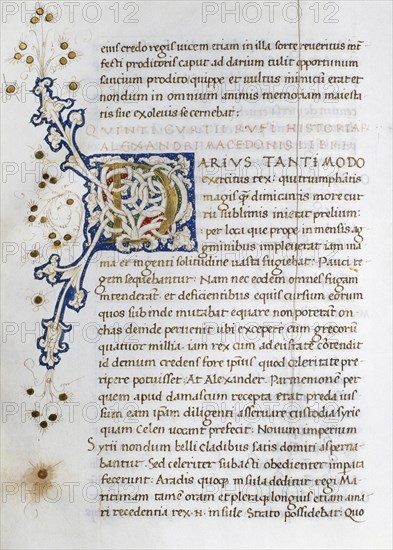 eius credo regis uicem etiam in illa sorte reueritus mã
festi proditoris caput ad darium tulit opportunum
saucium prodito: quippe et uultus minicii erat et
nondum in omnium animis memoriam maiesta
tis sue exoleuisse cernebat:
QVINTI CVRTII RVFI HISTORIAR
ALEXANDRI MACEDONIS LIBER
DARIVS TANTI MODO
exercitus rex. qui triumphantis
magis q̃ dimicantis more cur
ru sublimis inierat prelium:
per loca que prope inmensis ag
minibus impleuerat iam ina
nia et ingenti solitudine uasta fugiebat: Pauci re
gem sequebantur: Nam nec eodem omnes fugam
intenderant: et deficientibus equis cursum eorum
quos subinde mutabat equare non poterant: on
chas deinde peruenit ubi excepere eum grecorũ
quatuor millia. iam rex cum ad eufratẽ cõtendit
id demum credens fore ipsius quod celeritate pre
ripere potuisset. At Alexander. Parmenionẽ per
quem apud damascum recepta erat preda ius
sum eam ipsam diligenti asseruare custodia syrie
quam Celen uocant prefecit: Nouum imperium
Syrii nondum belli cladibus satis domiti asperna
bantur. Sed celeriter subacti obedienter impata
fecerunt: Aradis quoq insula deditur regi Ma
ritimam tamẽ oram et pleraq longius etiam a ma
ri recedentia rex .N. insule Strato possidebat: Quo
PHOTO12